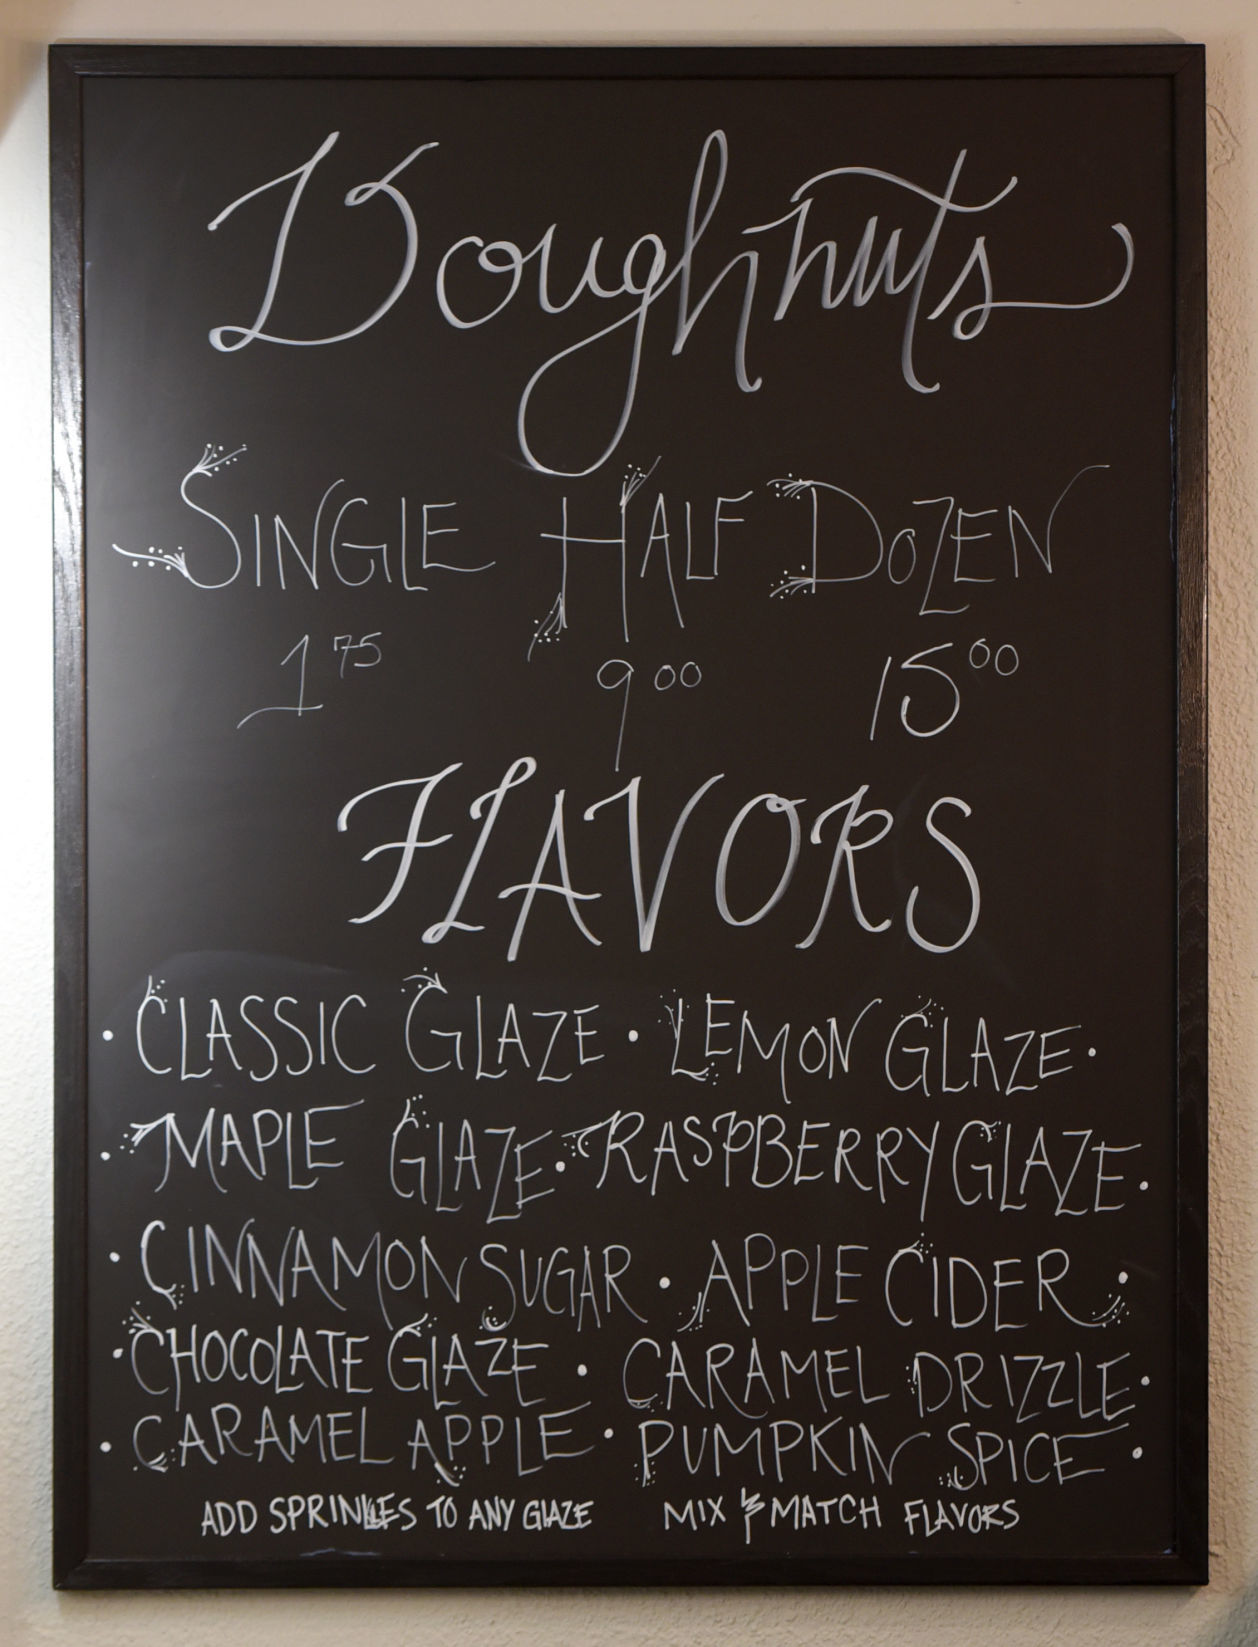 Doughnuts
SINGLE HALF DOZEN
1 75 9 00 15 00
FLAVORS
• CLASSIC GLAZE • LEMON GLAZE •
• MAPLE GLAZE • RASPBERRY GLAZE •
• CINNAMON SUGAR • APPLE CIDER •
• CHOCOLATE GLAZE • CARAMEL DRIZZLE •
• CARAMEL APPLE • PUMPKIN SPICE •
ADD SPRINKLES TO ANY GLAZE MIX & MATCH FLAVORS